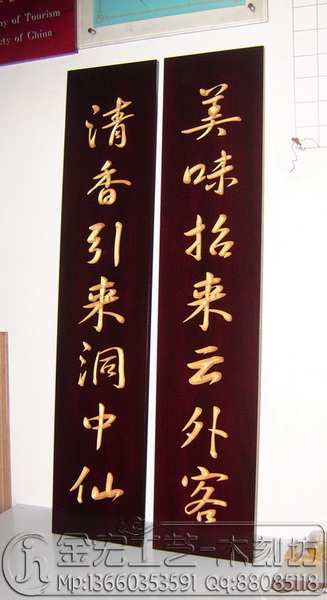 ny of Tourism
ety of China
美味招来云外客
清香引来洞中仙
金宏工艺-木刻坊
Mp:13660353591 QQ:88085118